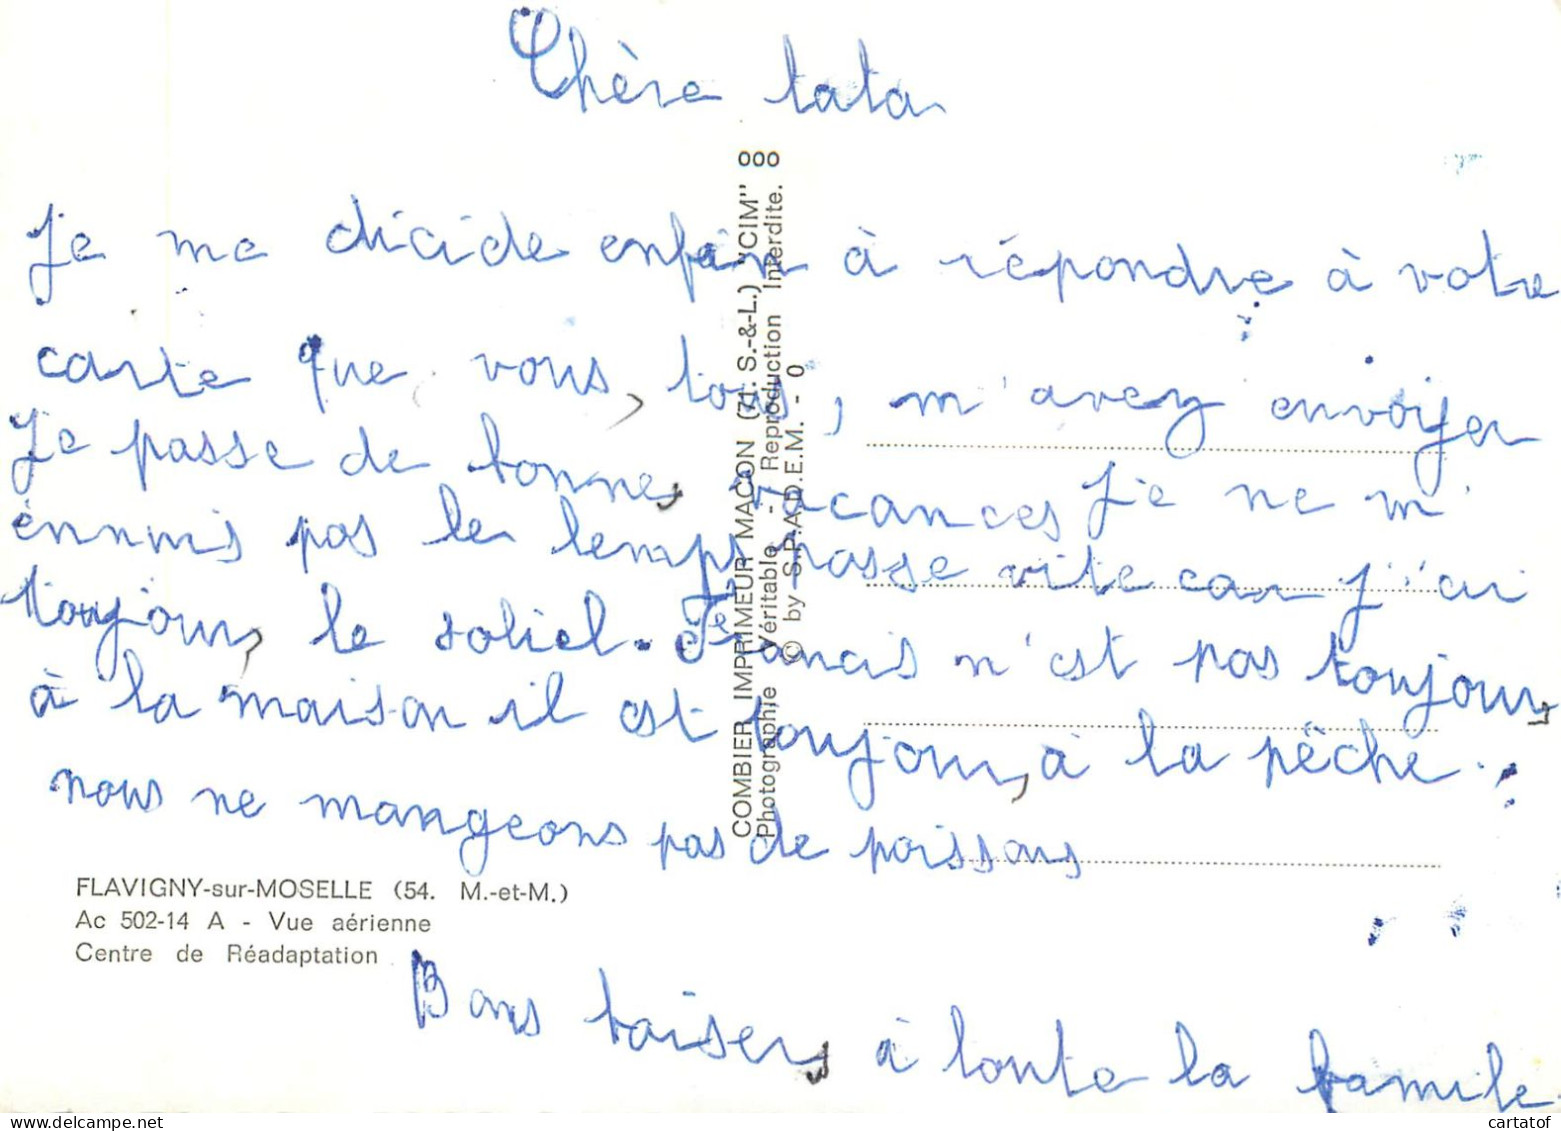 Chère tata
Je me dicide enfin à répondre à votre
carte que vous, tous, m'avez envoyer
Je passe de bonnes vacances Je ne m'
ennuis pas le temps passe vite car j'ai
toujours le soliel. Francis n'est pas toujours
à la maison il est toujours à la pêche.
nous ne mangeons pas de poissons
Bons baisers à toute la famile.
FLAVIGNY-sur-MOSELLE (54. M.-et-M.)
Ac 502-14 A - Vue aérienne
Centre de Réadaptation
COMBIER IMPRIMEUR MACON (71. S.-&-L.) "CIM" 000
Photographie Véritable - Reproduction Interdite.
© by S.P.A.D.E.M. - 0
cartatof